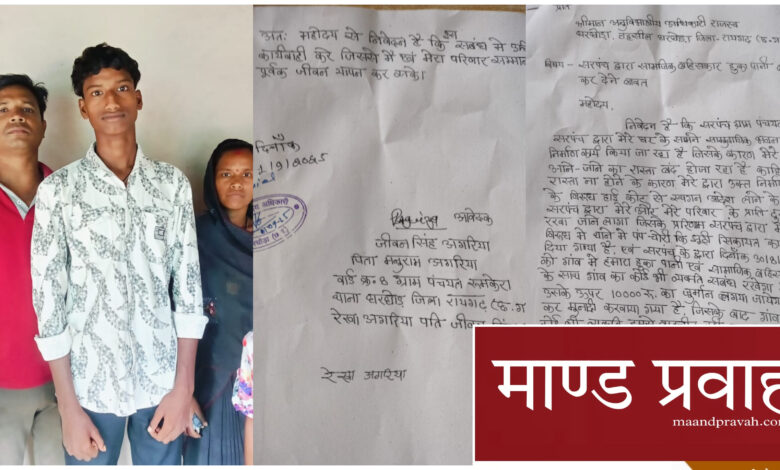 अतः महोदय से निवेदन है कि इस संबंध मे उचि
कार्यवाही करे जिससे में एवं मेरा परिवार सम्मान
पूर्वक जीवन यापन कर सके।
दिनाँक
1/9/2025
आवेदक
जीवन सिंह अगरिया
पिता मनुराम अगरिया
वार्ड क्र० 8 ग्राम पंचायत
थाना घरघोड़ा जिला रायगढ़ (छ.ग
रेखा अगरिया पति जीवन सिंह
रेखा अगरिया
प्रति
श्रीमान अनुविभागीय अधिकारी राजस्व
घरघोड़ा, तहसील घरघोड़ा, जिला-रायगढ़ (छ.ग
विषय - सरपंच द्वारा सामाजिक बहिस्कार हुका पानी
कर देने बाबत
महोदय,
निवेदन है कि सरपंच ग्राम पंचायत
सरपंच द्वारा मेरे घर के सामने सामुदायिक भवन
निर्माण कार्य किया जा रहा है जिसके कारण मेरे
आने-जाने का रास्ता बंद हो जा रहा है
रास्ता ना होने के कारण मेरे द्वारा उक्त निर्मा
के विरुध हाई कोर्ट से स्थगन आदेश लाने के
सरपंच द्वारा मेरे और मेरे परिवार के प्रति
रखा जाने लगा जिसके परिणाम सरपंच द्वारा
विरुध मे थाने में पंप चोरी कि झूठी सिकायत
दिया गया है। एवं सरपंच के द्वारा दिनांक 30/8/
को गांव में हमारा हुका पानी एवं सामाजिक बहिस्
के साथ गांव का कोई भी व्यक्ति संबंध रखेगा
उसके ऊपर 10000 रू. का जुर्माना लगाया जाये
कर मुनादी करवाया गया है, जिसके बाद गांव
माण्ड प्रवाह
maandpravah.com